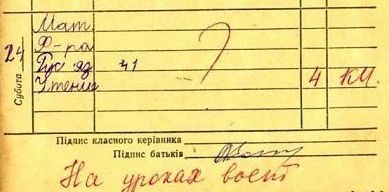 Субота
24
Мат.
Ф-ра
Рус. яз 41
Чтение 4 КМ.
Підпис класного керівника
Підпис батьків
На уроках воет